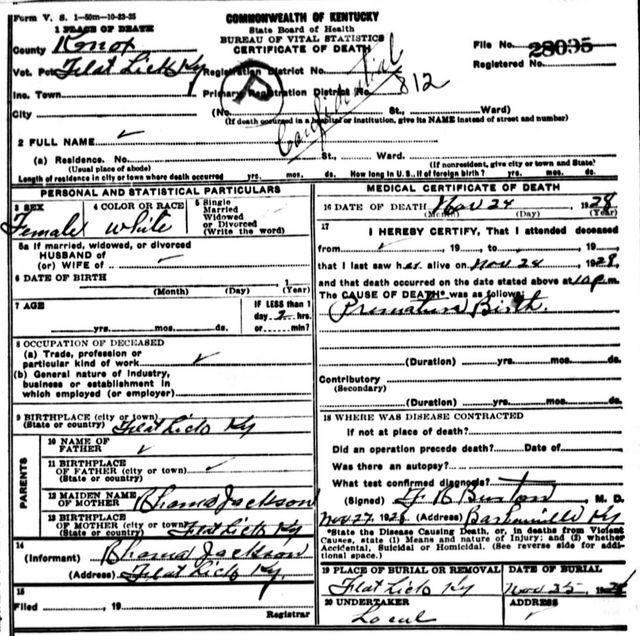 Form V. S. 1-50m-10-23-25
COMMONWEALTH OF KENTUCKY
1 PLACE OF DEATH
State Board of Health
BUREAU OF VITAL STATISTICS
CERTIFICATE OF DEATH
County Knox
File No. 28035
Vot. Pct Flat Lick Ky
Registration District No.
Registered No.
Confidential
Inc. Town
Primary Registration District No. 812
City (No. St., Ward)
(If death occurred in a hospital or institution, give its NAME instead of street and number)
2 FULL NAME ✓
(a) Residence. No. St., Ward.
(Usual place of abode) (If nonresident, give city or town and State)
Length of residence in city or town where death occurred yrs. mos. ds. How long in U. S., if of foreign birth? yrs. mos. ds.
PERSONAL AND STATISTICAL PARTICULARS
3 SEX 4 COLOR OR RACE 5 Single
Married
Widowed
or Divorced
(Write the word)
Female white
5a If married, widowed, or divorced
HUSBAND of
(or) WIFE of ✓
6 DATE OF BIRTH 1
(Month) (Day) (Year)
7 AGE IF LESS than 1
day 2 hrs.
yrs. mos. ds. or min?
8 OCCUPATION OF DECEASED
(a) Trade, profession or
particular kind of work ✓
(b) General nature of industry,
business or establishment in
which employed (or employer)
9 BIRTHPLACE (city or town)
(State or country) Flat Lick Ky
PARENTS
10 NAME OF
FATHER ✓
11 BIRTHPLACE
OF FATHER (city or town) ✓
(State or country)
12 MAIDEN NAME
OF MOTHER Rhoma Jackson
13 BIRTHPLACE
OF MOTHER (city or town)
(State or country) Flat Lick Ky
14
(Informant) Rhoma Jackson
(Address) Flat Lick Ky.
15
Filed , 19
Registrar
MEDICAL CERTIFICATE OF DEATH
16 DATE OF DEATH Nov 24 1928
(Month) (Day) (Year)
17
I HEREBY CERTIFY, That I attended deceased
from ✓, 19 to , 19
that I last saw her alive on Nov 24 1928
and that death occurred on the date stated above at 10 P.m.
The CAUSE OF DEATH* was as follows:
Premature Birth.
(Duration) yrs. mos. ds.
Contributory
(Secondary)
(Duration) yrs. mos. ds.
18 WHERE WAS DISEASE CONTRACTED
If not at place of death?
Did an operation precede death? Date of
Was there an autopsy?
What test confirmed diagnosis?
(Signed) Burton M. D.
Nov 27, 1928 (Address) Barbourville Ky
*State the Disease Causing Death, or, in deaths from Violent
Causes, state (1) Means and nature of Injury; and (2) whether
Accidental, Suicidal or Homicidal. (See reverse side for additional
space.)
19 PLACE OF BURIAL OR REMOVAL DATE OF BURIAL
Flat Lick Ky Nov 25 1928
20 UNDERTAKER ADDRESS
Local ✓